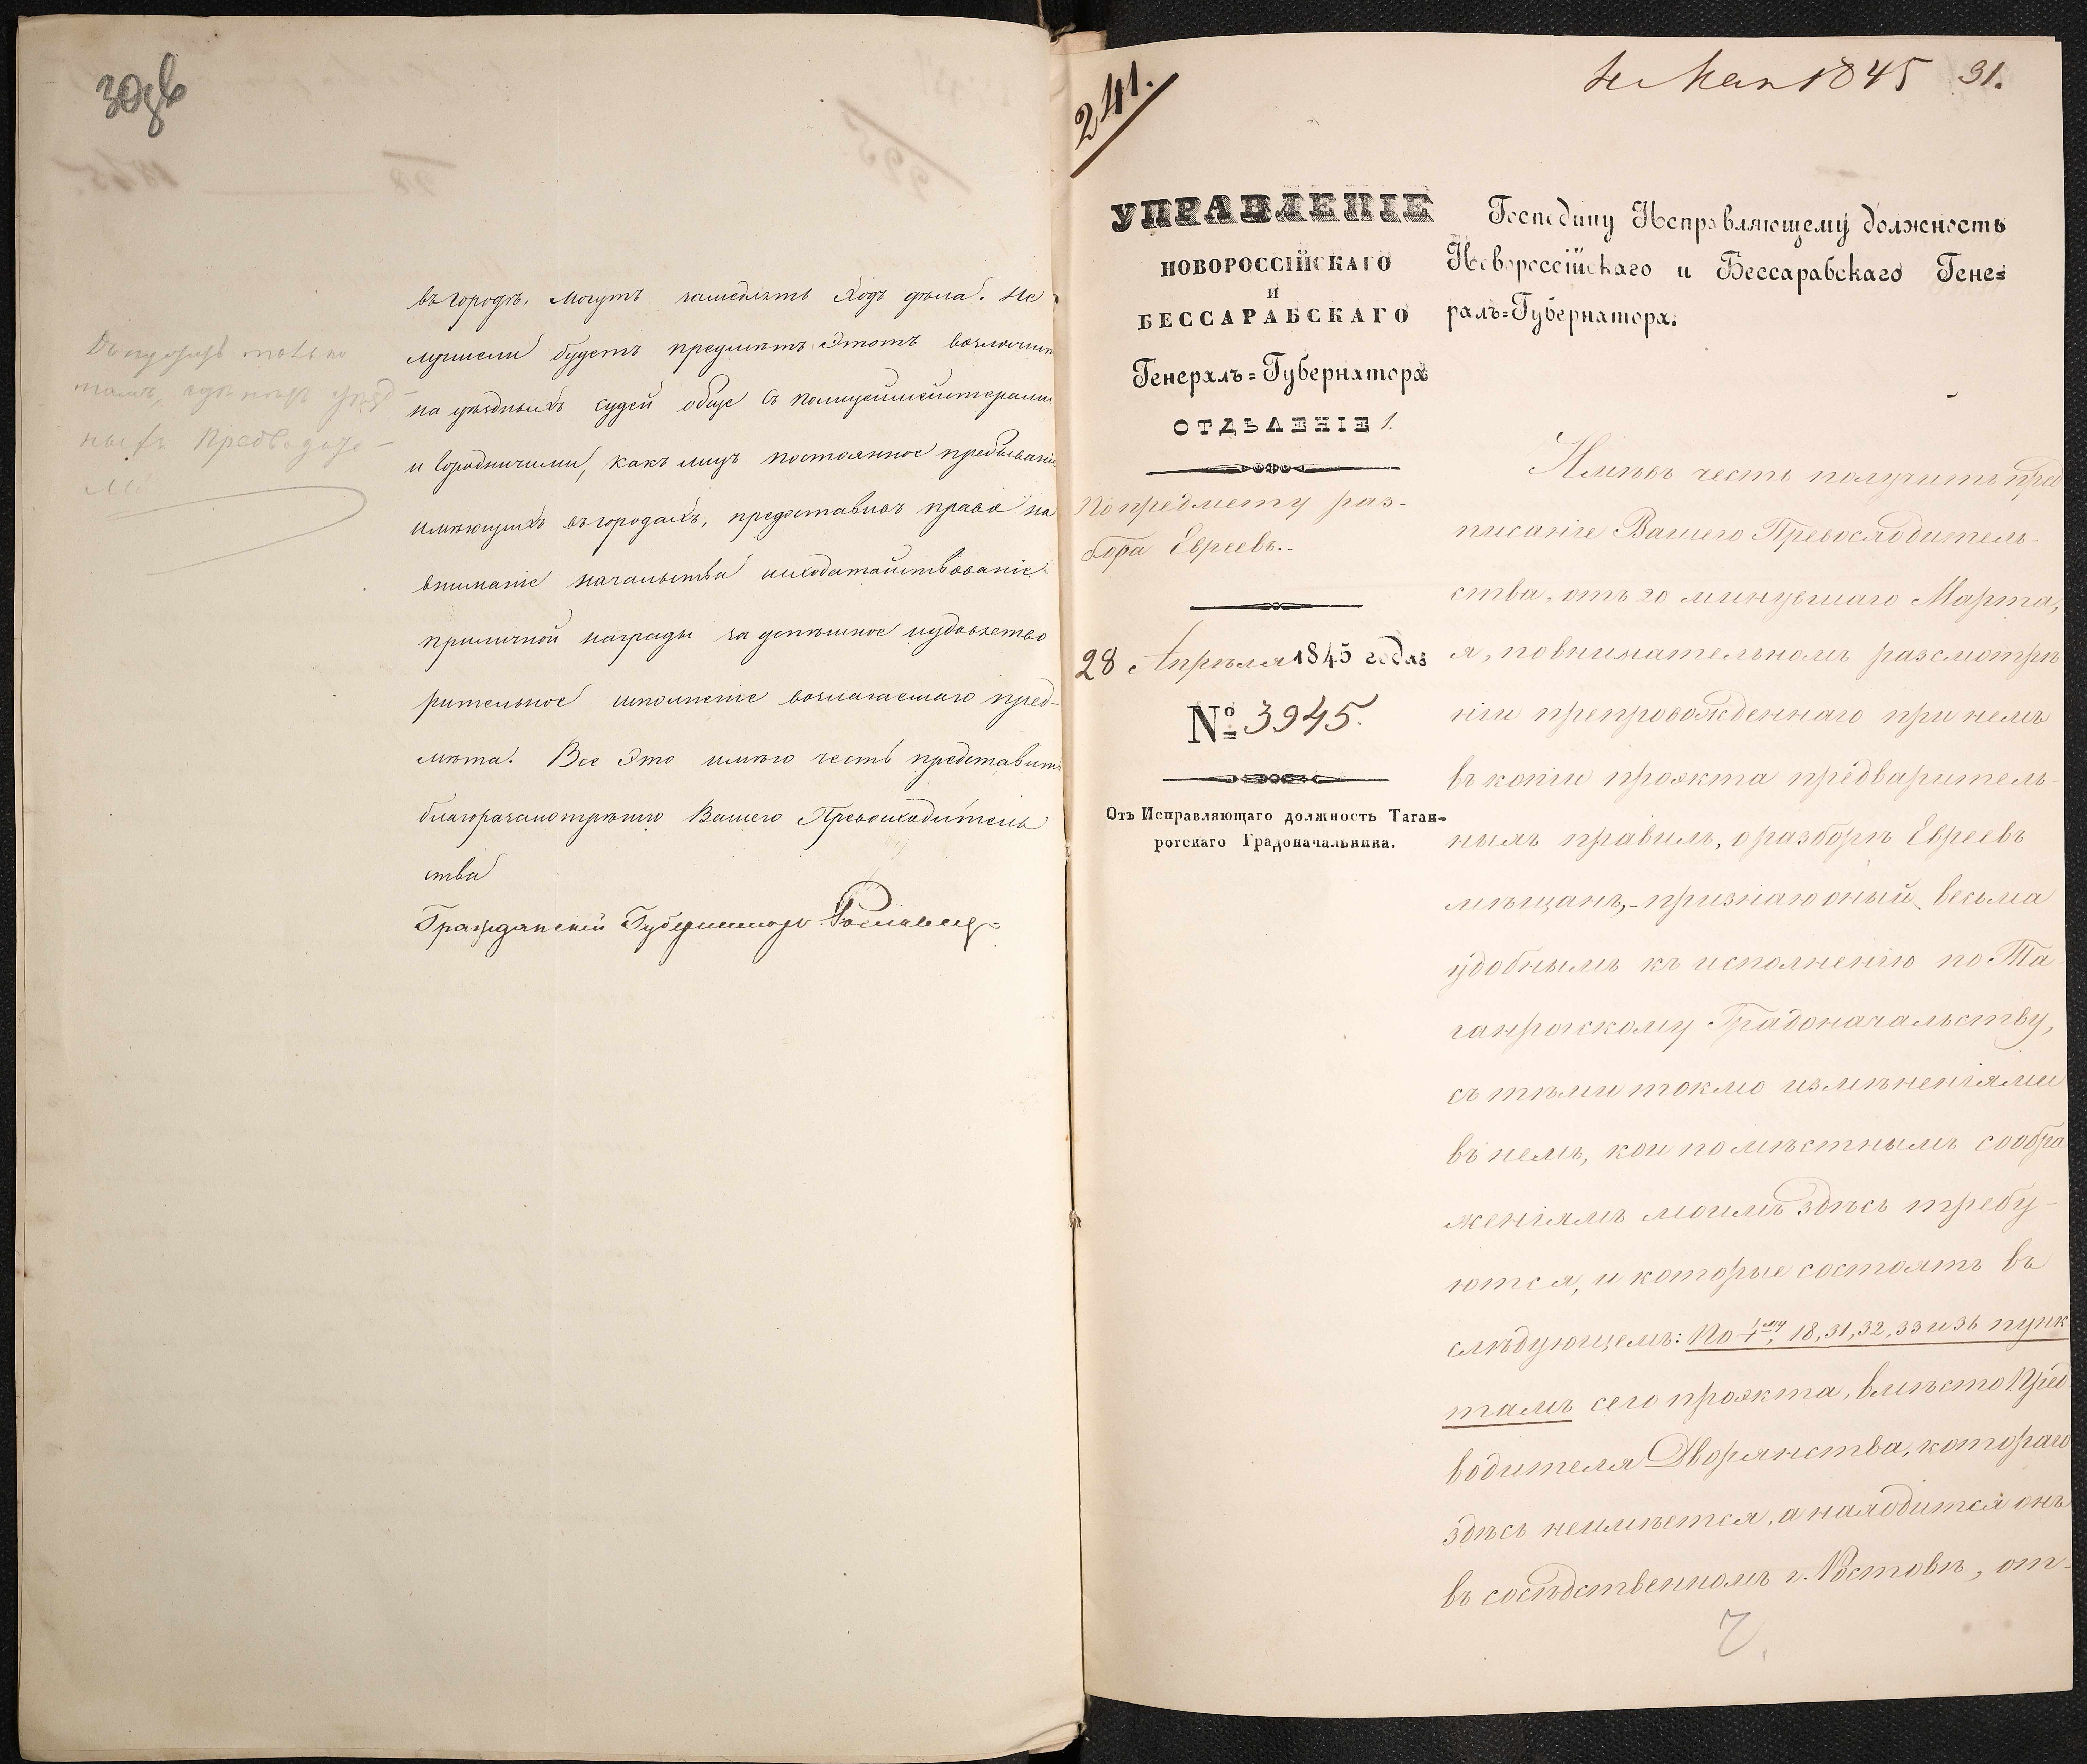 30об
въ городѣ, могутъ замедлять ходъ дѣла. Не
лучшели будетъ предметъ этотъ возложить
на уѣздныхъ судей обще съ полицеймейстерами
и городничими, какъ лицъ постоянное пребываніе
имѣющихъ въ городахъ, предоставивъ право на
вниманіе начальства исходатайствованіе
приличной награды за успѣшное и удовлетво
рительное исполненіе возлагаемаго пред-
мета. Все это имѣю честь представить
благоразсмотрѣнію Вашего Превосходитель
ства
Гражданскій Губернаторъ Рославецъ
только
тамъ, гдѣ нѣтъ уѣзд-
ныхъ Предводите-
лей
241.
4 Мая 1845 31.
УПРАВЛЕНІЕ
НОВОРОССІЙСКАГО
И
БЕССАРАБСКАГО
Генералъ=Губернатора
ОТДѢЛЕНІЕ 1.
По предмету раз-
бора Евреевъ.
28 Апрѣля 1845 года
№ 3945.
Отъ Исправляющаго должность Таган-
рогскаго Градоначальника.
Господину Исправляющему должность
Новороссійскаго и Бессарабскаго Гене=
ралъ=Губернатора.
Имѣвъ честь получить пред
писаніе Вашего Превосходитель-
ства, отъ 20 минувшаго Марта,
я, по внимательномъ разсмотрѣ
ніи препровожденнаго при немъ
въ копіи проэкта предваритель-
ныхъ правилъ, о разборѣ Евреевъ
мѣщанъ,- признаю оный весьма
удобнымъ къ исполненію по Та
ганрогскому Градоначальству,
съ тѣми токмо измѣненіями
въ немъ, кои по мѣстнымъ сообра
женіямъ моимъ здѣсь требу-
ются, и которые состоятъ въ
слѣдующемъ: По 1му, 18, 31, 32, 33 и 36 пунк
тамъ сего проэкта, вмѣсто Пред
водителя Дворянства, котораго
здѣсь неимѣется, а находится онъ
въ сосѣдственномъ г. Ростовѣ, от-